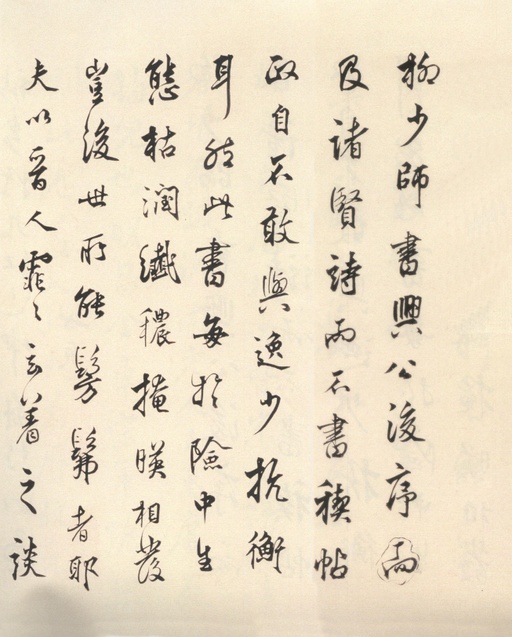 柳少師書興公後序而
及諸賢詩而不書稧帖
政自不敢與逸少抗衡
耳然此書每於險中生
態枯潤纖穠掩暎相發
豈後世所能髣髴者耶
夫以晉人霏々玄著之談